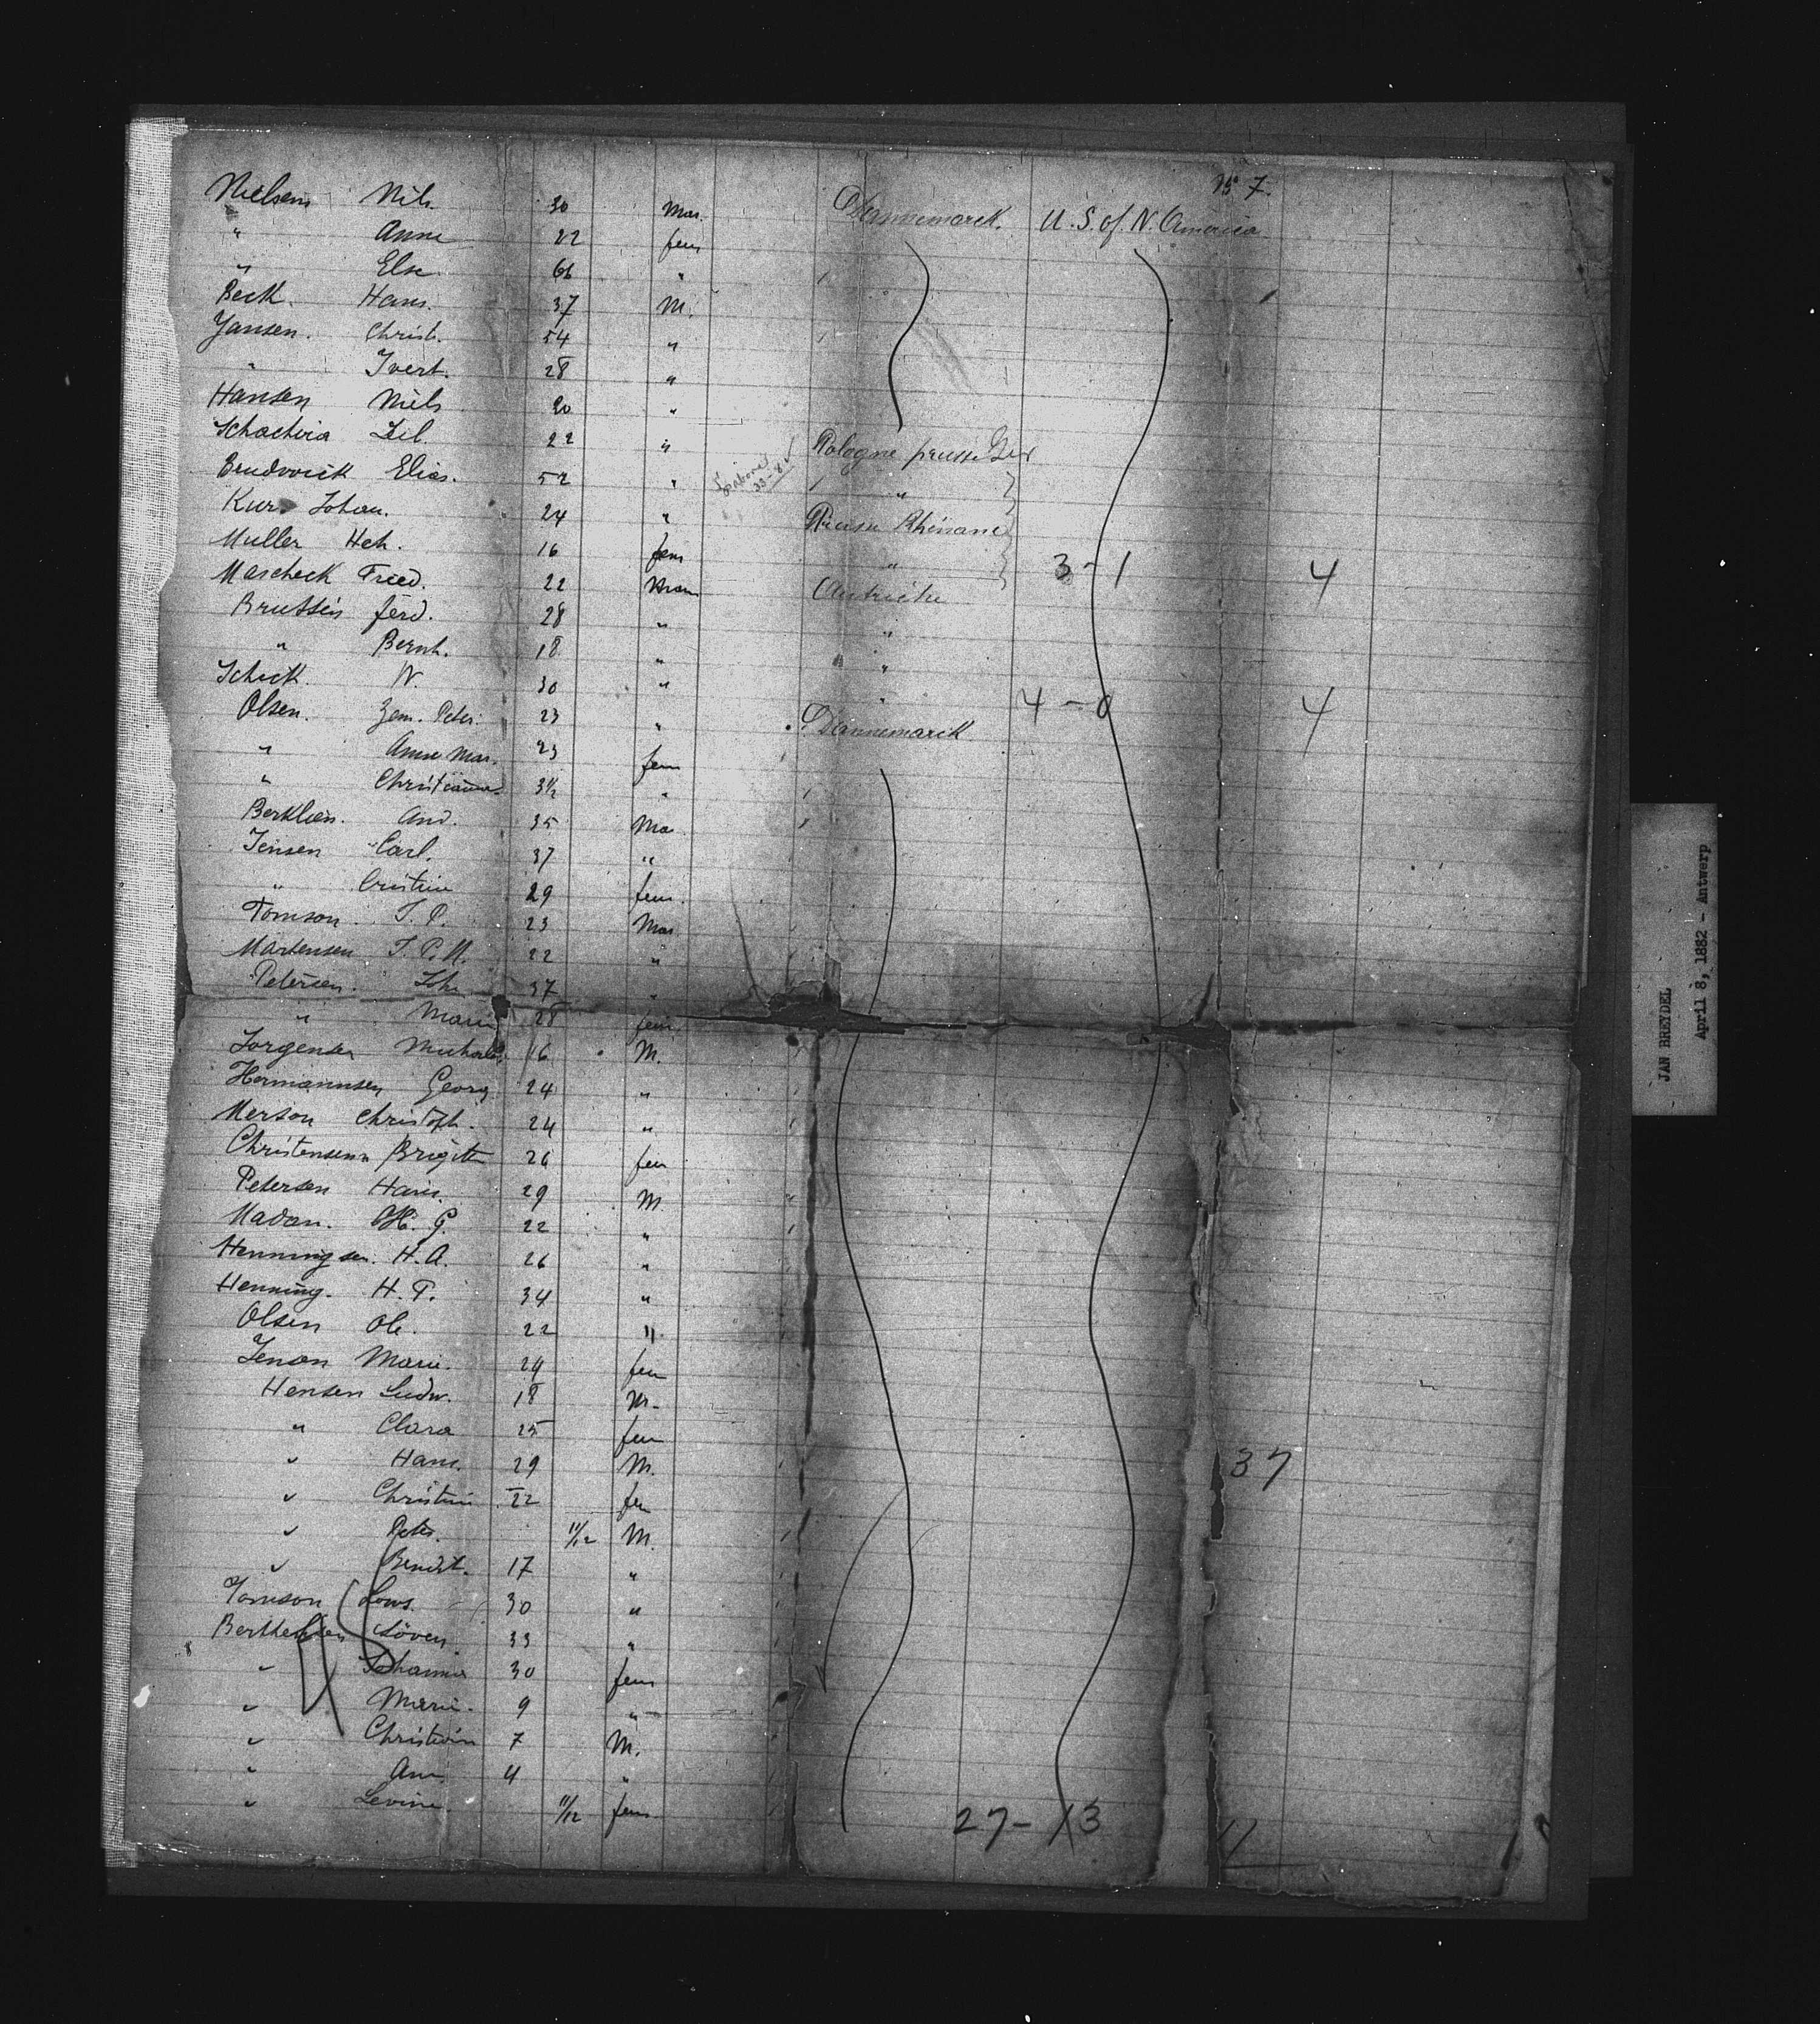 7.
Nielsen Nils 30 Mas. Dannemarck. U.S. of N. America
" Anne 22 fem
" Else 66 "
Beck. Hans. 37 M.
Jansen. Christ. 54 "
" Ivert. 28 "
Hansen Niels 20 "
22 " Pologne prusse Ger
Elias. 52 " "
Kur Johan. 24 " Rhénane
Muller Hch. 16 fem "
3-1 4
Mascheck Fried. 22 Autriche
ferd. 28 " "
" Bernh. 18 " "
Schick W. 30 " "
4-0 4
Olsen. Peter. 23 " Dannemarck
" Anne Mar. 23 fem
" 3 1/2 "
And. 35 Mas.
Jensen Carl. 37 "
" Cristine 29 fem.
Tomson. J. P. 23 Mas
Martensen J. P. M. 22 "
Petersen. Joh 37 "
" Marie 28 fem
16 M.
Hermannsen Georg 24 "
Merson Christoph. 24 "
Brigitte 26 fem
Petersen Hans. 29 M.
Madan. G. 22 "
Henningsen. H.A. 26 "
Henning. H. P. 34 "
Olsen Ole. 22 "
Marie. fem
Hensen Ludw. 18 M.
" Clara 25 fem
" Hans. 29 M. 37
" Christine 22 fem
" Peter. 11/12 M.
" Bendit. 17 "
Tomson Lows. 30 "
33 "
" Johanna 30 fem
" Marie. 9 "
" Christian 7 M.
" 4 "
" Levine. 11/12 fem.
27-13
45
JAN BREYDEL
April 8, 1882 - Antwerp